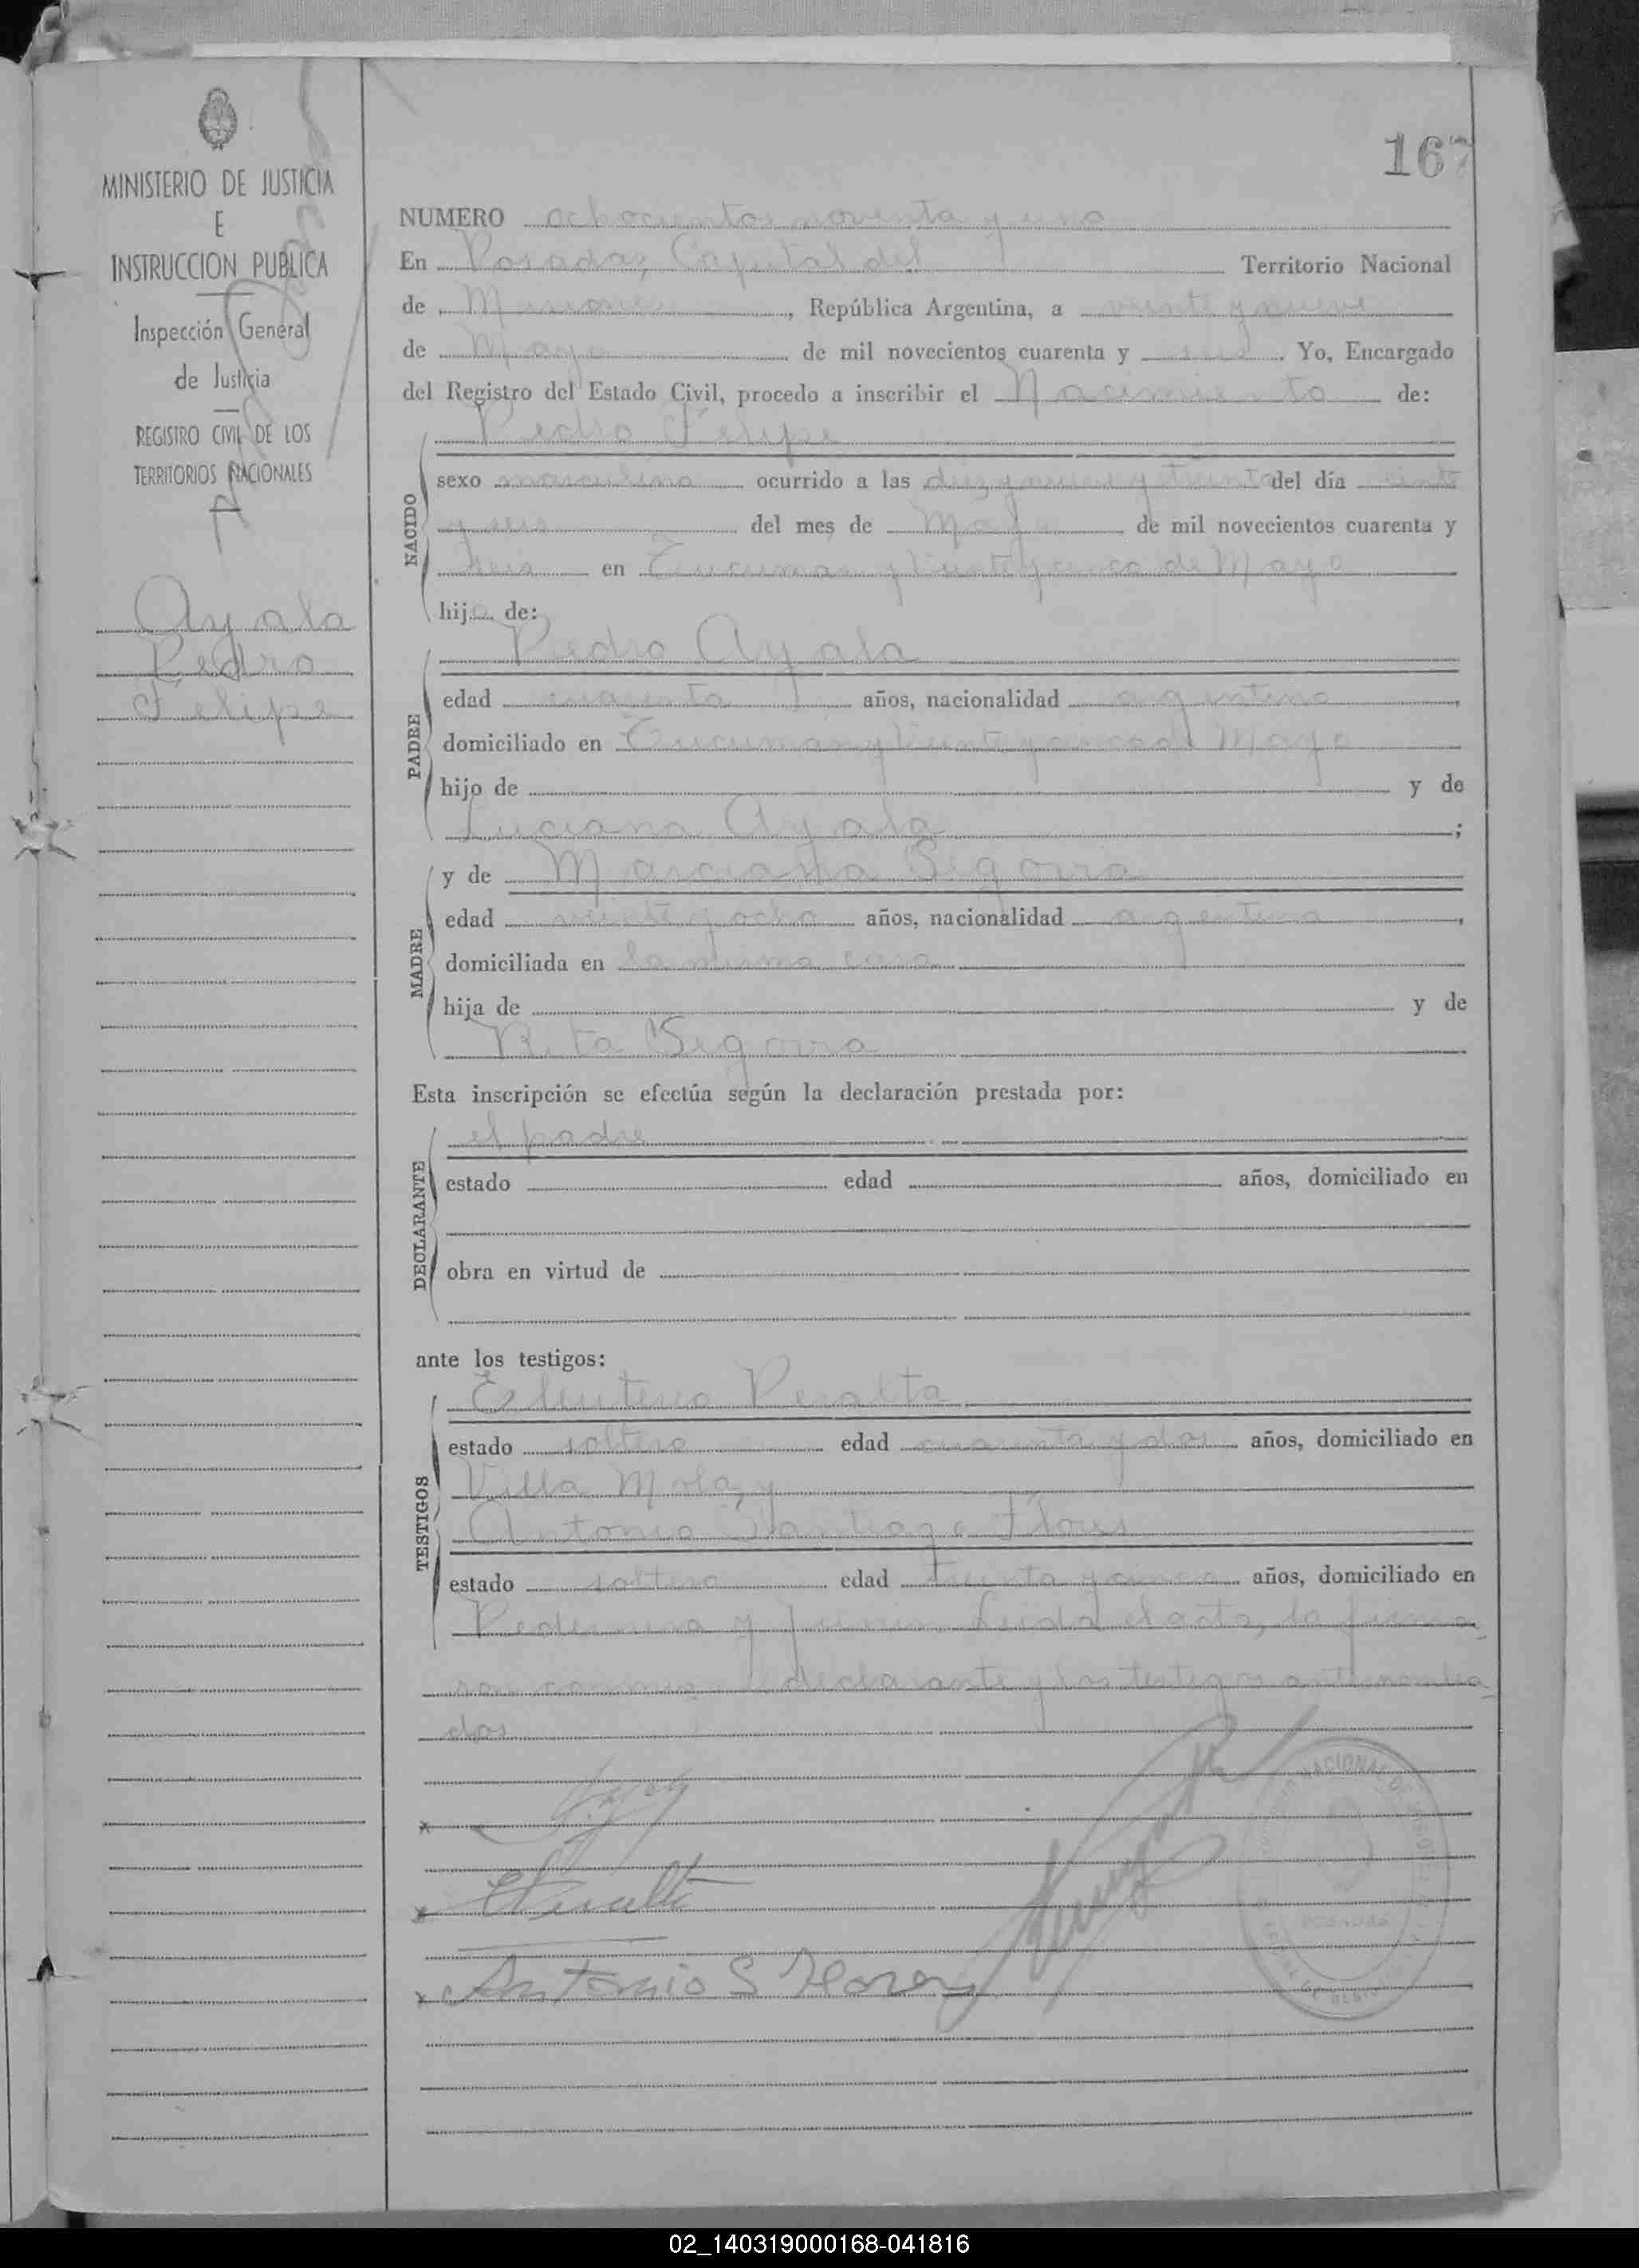 167
MINISTERIO DE JUSTICIA
E
INSTRUCCION PUBLICA
Inspección General
de Justicia
REGISTRO CIVIL DE LOS
TERRITORIOS NACIONALES
Ayala
Pedro
Felipe
NUMERO ochocientos noventa y uno
En Posadas, Capital del Territorio Nacional
de Misiones, República Argentina, a veinte y nueve
de Mayo de mil novecientos cuarenta y seis. Yo, Encargado
del Registro del Estado Civil, procedo a inscribir el Nacimiento de:
Pedro Felipe
NACIDO
sexo masculino ocurrido a las diez y nueve y treinta del día veinte
y seis del mes de Mayo de mil novecientos cuarenta y
seis en Tucuman y Veinte y cinco de Mayo
hijo de:
Pedro Ayala
PADRE
edad cuarenta años, nacionalidad argentino,
domiciliado en Tucuman y Veinte y cinco de Mayo
hijo de y de
Luciana Ayala;
y de Marciana Segovia
MADRE
edad veinte y ocho años, nacionalidad argentina,
domiciliada en la misma casa
hija de y de
Rita Segovia
Esta inscripción se efectúa según la declaración prestada por:
el padre
DECLARANTE
estado edad años, domiciliado en
obra en virtud de
ante los testigos:
Eleuterio Peralta
TESTIGOS
estado soltero edad cuarenta y dos años, domiciliado en
Villa Mola, y
Antonio Santiago Flores
estado soltero edad treinta y cinco años, domiciliado en
Pedernera y Junin. Leida el acta, la firma
ron conmigo el declarante y los testigos antenombra
dos
x
x EPeralta
x Antonio S Flores
NACIONAL
POSADAS
02_140319000168-041816